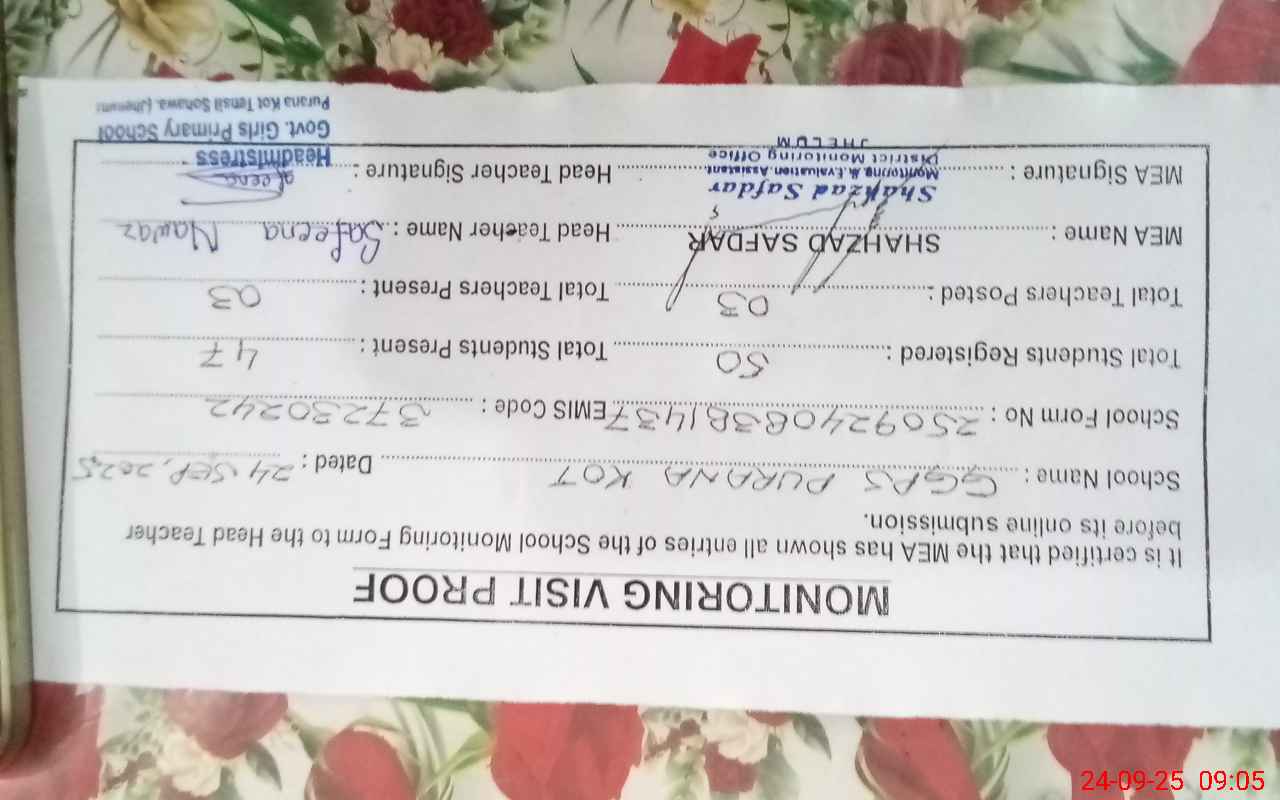 MONITORING VISIT PROOF
It is certified that the MEA has shown all entries of the School Monitoring Form to the Head Teacher
before its online submission.
School Name : GGPS PURANA KOT Dated : 24 SEP, 2025
School Form No : 2509240838,1437 EMIS Code : 37230242
Total Students Registered : 50 Total Students Present : 47
Total Teachers Posted : 03 Total Teachers Present : 03
MEA Name : SHAHZAD SAFDAR Head Teacher Name : Safeena Nawaz
MEA Signature : Head Teacher Signature :
Shahzad Safdar
Monitoring & Evaluation Assistant
District Monitoring Office
JHELUM
Headmistress
Govt. Girls Primary School
Purana Kot Tehsil Sohawa. (Jhelum)
24-09-25 09:05